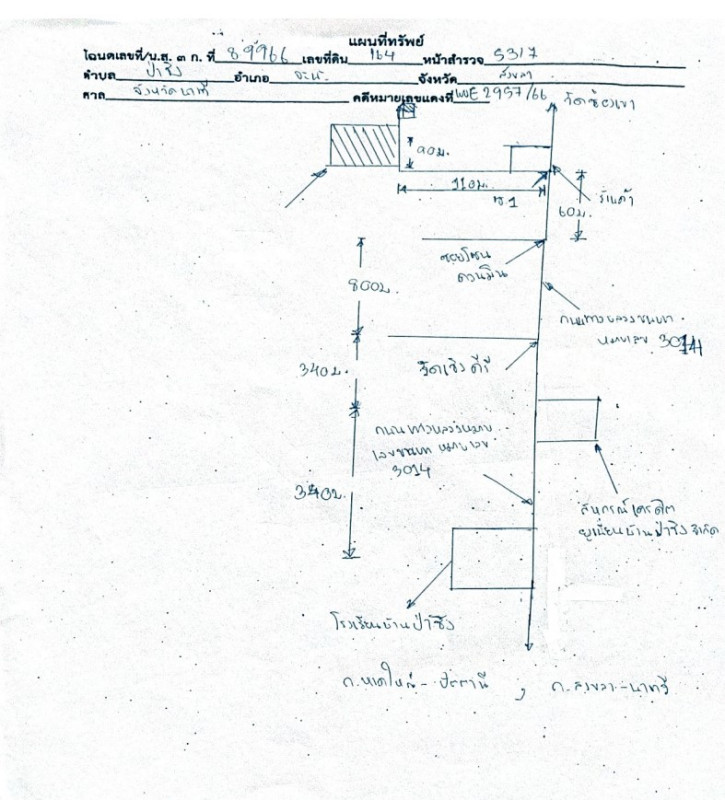 แผนที่ทรัพย์
โฉนดเลขที่/น.ส. ๓ ก. ที่ 89966 เลขที่ดิน 164 หน้าสำรวจ 5317
ตำบล ป่าชิง อำเภอ จะนะ จังหวัด สงขลา
ศาล จังหวัดนาทวี คดีหมายเลขแดงที่ ผบE 2957/66
วัดช่องเขา
90ม.
110ม.
ซ.1
ร้านค้า
60ม.
ซอยโซน
800ม.
ถนนทางหลวงชนบท
หมายเลข 3014
340ม.
วัดเชิงคีรี
ถนนทางหลวงหมาย
เลขชนบท หมายเลข
3014
340ม.
สหกรณ์เครดิต
ยูเนี่ยนบ้านป่าชิง จำกัด
โรงเรียนบ้านป่าชิง
ถ.หาดใหญ่-ปัตตานี , ถ.สงขลา-นาทวี